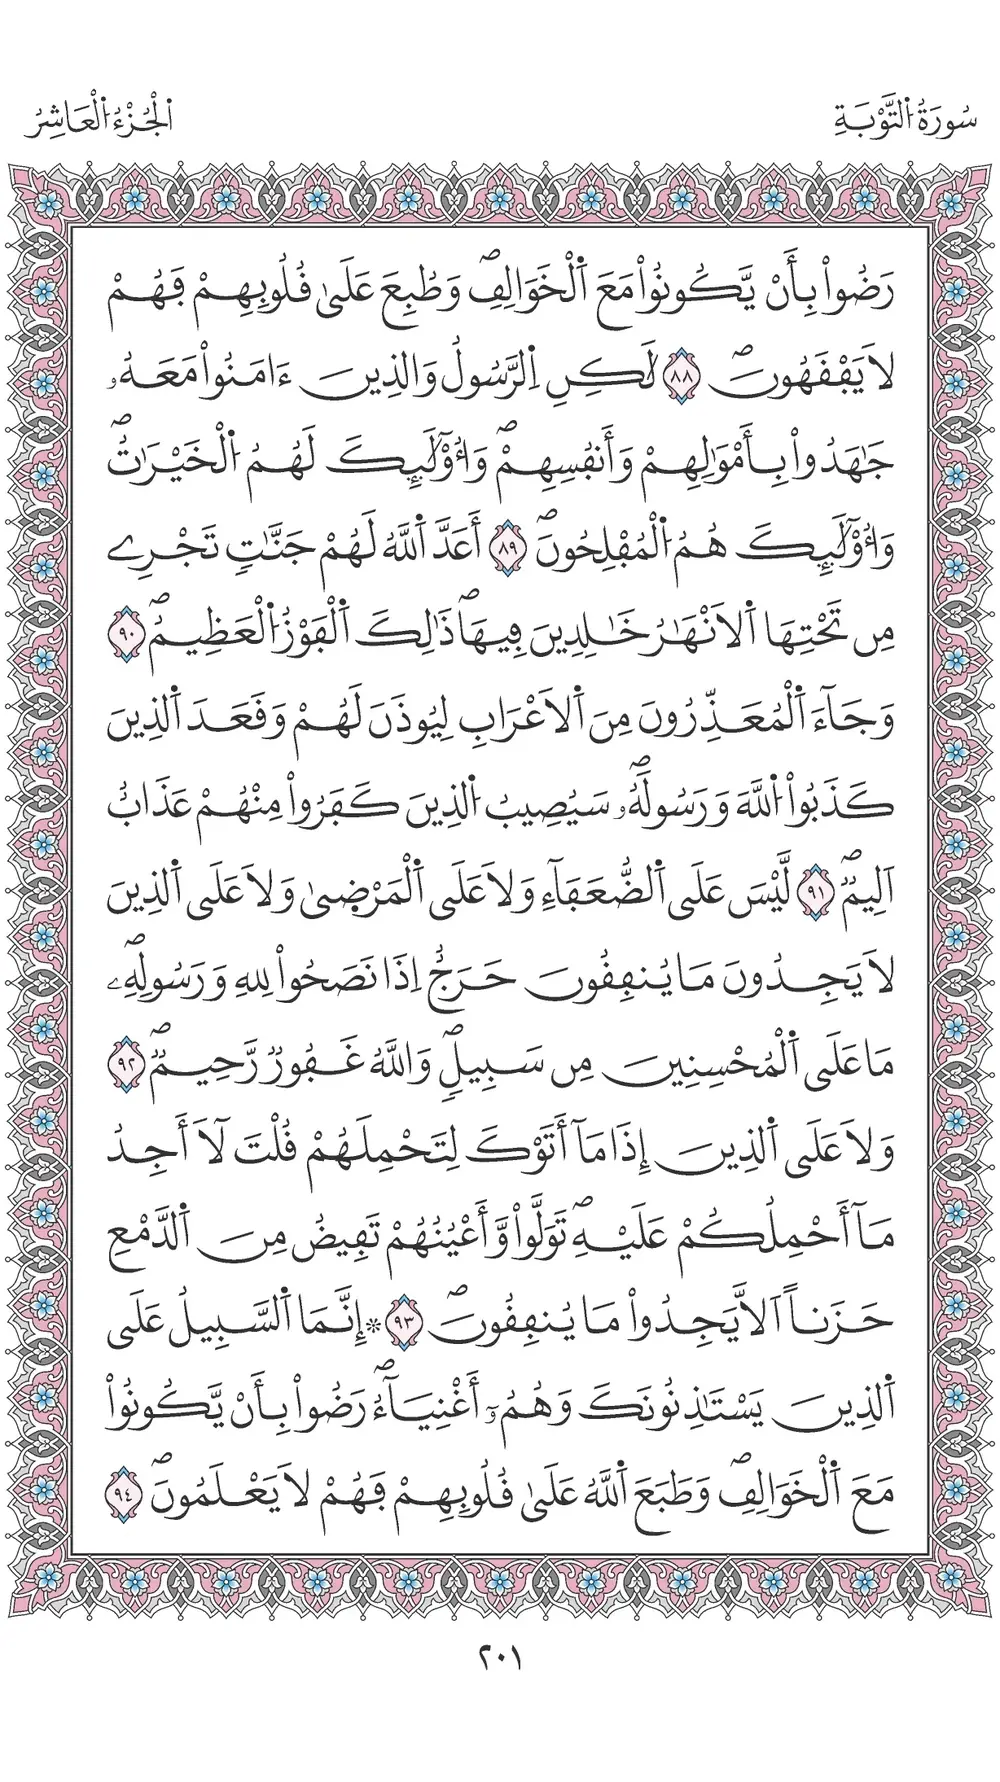 سُورَةُ اُ۬لتَّوْبَةِ
اَ۬لْجُزْءُ اُ۬لْعَاشِرُ
رَضُواْ بِأَنْ يَّكُونُواْ مَعَ اَ۬لْخَوَالِفِۖ وَطُبِعَ عَلَىٰ قُلُوبِهِمْ فَهُمْ
لَا يَفْقَهُونَۖ ٨٨ لَٰكِنِ اِ۬لرَّسُولُ وَالذِينَ ءَامَنُواْ مَعَهُۥ
جَٰهَدُواْ بِأَمْوَٰلِهِمْ وَأَنفُسِهِمْۖ وَأُوْلَٰٓئِكَ لَهُمُ اُ۬لْخَيْرَٰتُۖ
وَأُوْلَٰٓئِكَ هُمُ اُ۬لْمُفْلِحُونَۖ ٨٩ أَعَدَّ اَ۬للَّهُ لَهُمْ جَنَّٰتٖ تَجْرِے
مِن تَحْتِهَا اَ۬لَانْهَٰرُ خَٰلِدِينَ فِيهَاۖ ذَٰلِكَ اَ۬لْفَوْزُ اُ۬لْعَظِيمُۖ ٩٠
وَجَآءَ اَ۬لْمُعَذِّرُونَ مِنَ اَ۬لَاعْرَابِ لِيُوذَنَ لَهُمْ وَقَعَدَ اَ۬لذِينَ
كَذَبُواْ اُ۬للَّهَ وَرَسُولَهُۥۖ سَيُصِيبُ اُ۬لذِينَ كَفَرُواْ مِنْهُمْ عَذَابٌ
اَلِيمٞۖ ٩١ لَّيْسَ عَلَى اَ۬لضُّعَفَآءِ وَلَا عَلَى اَ۬لْمَرْضۭىٰ وَلَا عَلَى اَ۬لذِينَ
لَا يَجِدُونَ مَا يُنفِقُونَ حَرَجٌ اِذَا نَصَحُواْ لِلهِ وَرَسُولِهِۦۖ
مَا عَلَى اَ۬لْمُحْسِنِينَ مِن سَبِيلٖۖ وَاللَّهُ غَفُورٞ رَّحِيمٞۖ ٩٢
وَلَا عَلَى اَ۬لذِينَ إِذَا مَآ أَتَوْكَ لِتَحْمِلَهُمْ قُلْتَ لَآ أَجِدُ
مَآ أَحْمِلُكُمْ عَلَيْهِۖ تَوَلَّواْ وَّأَعْيُنُهُمْ تَفِيضُ مِنَ اَ۬لدَّمْعِ
حَزَناً اَلَّا يَجِدُواْ مَا يُنفِقُونَۖ ٩٣ ۞إِنَّمَا اَ۬لسَّبِيلُ عَلَى
اَ۬لذِينَ يَسْتَٰذِنُونَكَ وَهُمُۥٓ أَغْنِيَآءُۖ رَضُواْ بِأَنْ يَّكُونُواْ
مَعَ اَ۬لْخَوَالِفِۖ وَطَبَعَ اَ۬للَّهُ عَلَىٰ قُلُوبِهِمْ فَهُمْ لَا يَعْلَمُونَۖ ٩٤
٢٠١